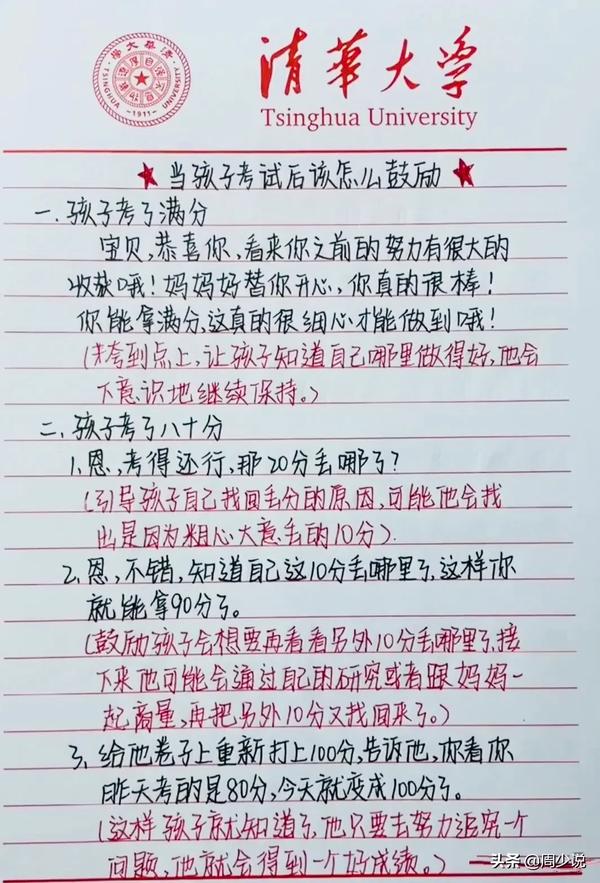 清華大学
Tsinghua University
清華大學
TSINGHUA UNIVERSITY
自强不息 厚德载物
-1911-
★ 当孩子考试后该怎么鼓励 ★
一.孩子考了满分
宝贝,恭喜你,看来你之前的努力有很大的
收获哦!妈妈好替你开心,你真的很棒!
你能拿满分,这真的很细心才能做到哦!
(夸到点上,让孩子知道自己哪里做得好,他会
下意识地继续保持。)
二.孩子考了八十分
1.恩,考得还行,那20分丢哪了?
(引导孩子自己找回丢分的原因,可能他会找
出是因为粗心大意丢的10分).
2.恩,不错,知道自己这10分丢哪里了,这样你
就能拿90分了。
(鼓励孩子会想要再看看另外10分丢哪里了,接
下来他可能会通过自己的研究或者跟妈妈一
起商量,再把另外10分又找回来了。)
3.给他卷子上重新打上100分,告诉他,你看你
昨天考的是80分,今天就变成100分了。
(这样孩子就知道了,他只要去努力追究一个
问题,他就会得到一个好成绩。)
头条@周少说